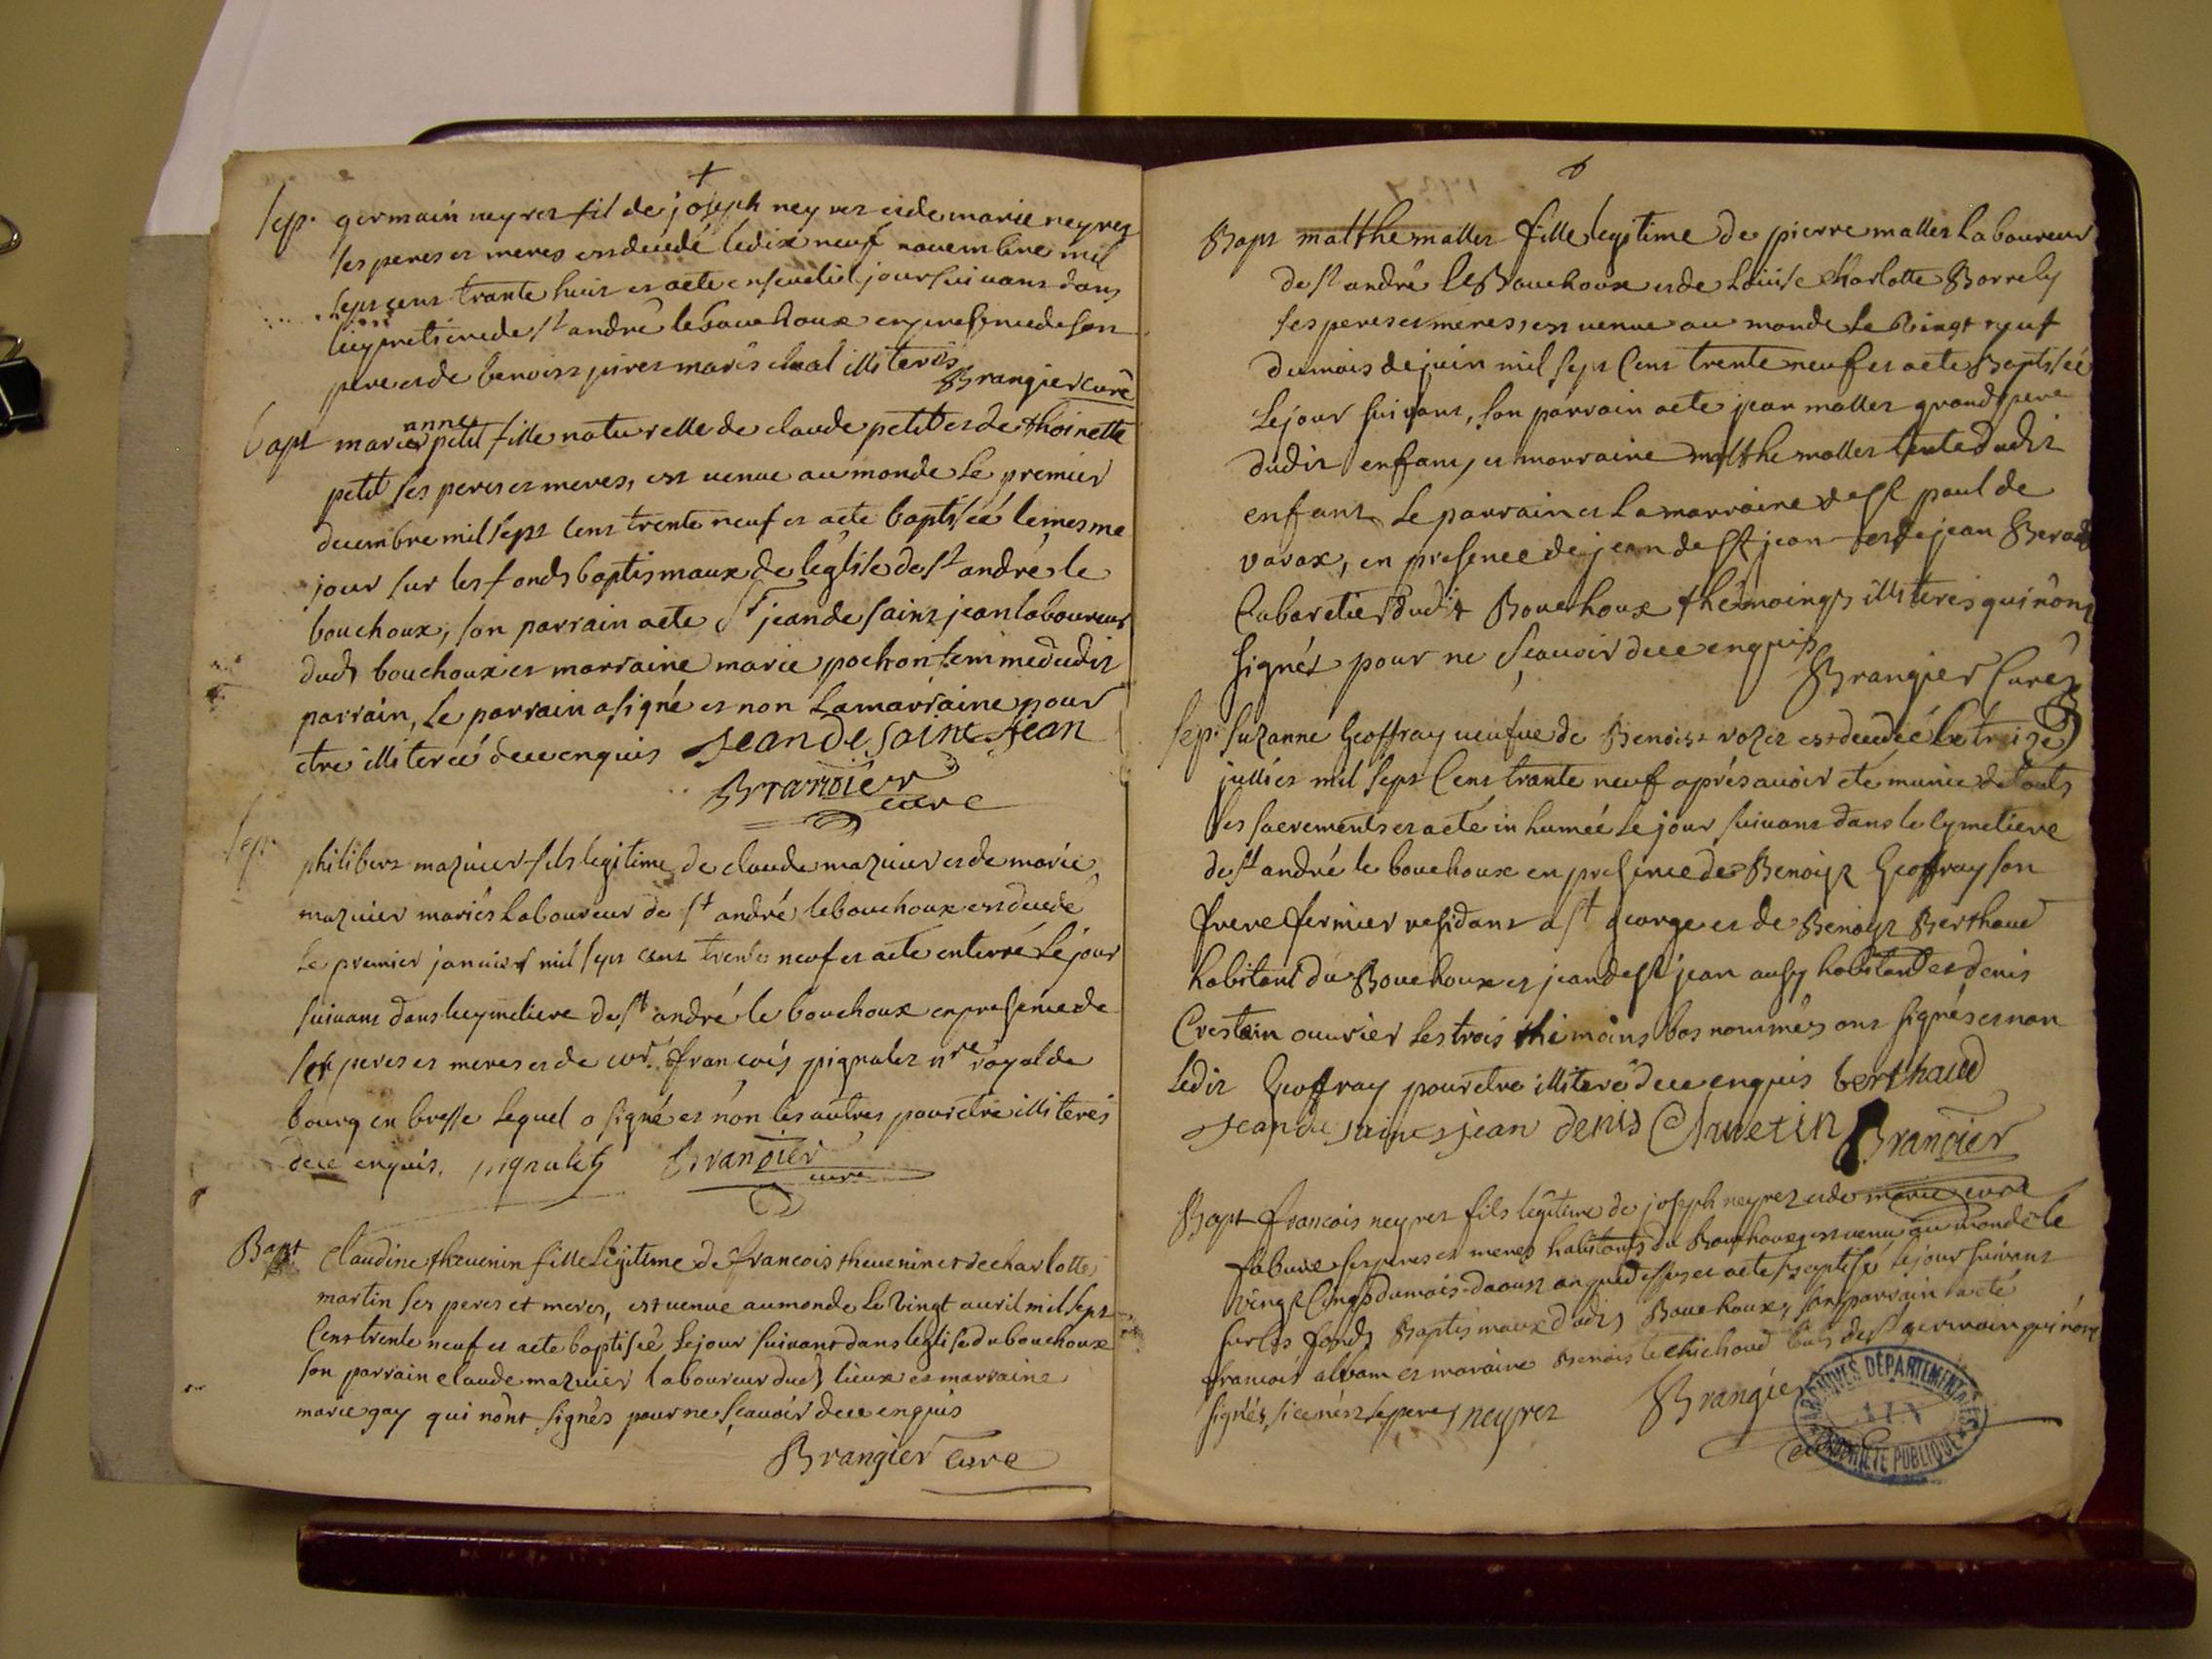 Sep. germain neyrez fil de joseph neyrez et de marie neyrez
ses peres et meres est decedé le dix neuf novembre mil
sept cent trante huit et a ete enseveli le jour suivant dans
le cymetiere de st andré le bouchoux en presence de son
pere et de benoist
marêchal illiterés Brangier curé
bapt marie anne petit fille naturelle de claude petit et de thoinette
petit ses peres et meres, est venue au monde le premier
decembre mil sept cent trente neuf et a ete baptiséé le mesme
jour sur les fonds baptismaux de leglise de st andré le
bouchoux, son parrain a ete Sr jean de saint jean laboureur
dudt bouchoux et marraine marie pochon femme dudit
parrain, le parrain a signé et non la marraine pour
etre illiterée de ce enquis Jean de Saint Jean
Brangier
cure
Sep. philibert mazuier fils legitime de claude mazuier et de marie
mazuier mariés laboureur de st andré le bouchoux est decedé
le premier janvier mil sept cent trente neuf et a ete enterré le jour
suivant dans le cymetiere de st andré le bouchoux en presence de
ses peres et meres et de françois pignalet nre royal de
bourg en bresse lequel a signé et non les autres pour etre illiterés
de ce enquis. pignalet Brangier
cure
Bapt Claudine thevenin fille legitime de francois thevenin et de charlotte
martin ses peres et meres, est venue au monde le vingt avril mil sept
cent trente neuf et a ete baptiséé le jour suivant dans leglise du bouchoux
son parrain claude mazuier laboureur dudt lieux et marraine
marie gay qui n'ont signés pour ne sçavoir de ce enquis
Brangier curé
Bapt malthe mallet fille legitime de pierre mallet laboureur
de st andré le Bouchoux et de Loüise charlotte Borrely
ses peres et meres, est venue au monde le vingt neuf
du mois de juin mil sept cent trente neuf et a ete Baptiséé
le jour suivant, son parrain a ete jean mallet grand pere
dudit enfant, et marraine malthe mallet tente dudit
enfant le parrain et la marraine de st paul de
varax, en presence de jean de st jean et de jean Beraud
Cabaretier dudit Bouchoux thêmoings illiterés qui n'ont
signés pour ne sçavoir de ce enquis
Brangier Curé
Sep. Suzanne Geoffray veufve de Benoist est decedéé le treize
jullict mil sept cent trante neuf après avoir ete munie de touts
ses sacrements et a eté inhuméé le jour suivant dans le cymetiere
de st andré le bouchoux en presence de Benoist Geoffray son
frere fermier residant a st george et de Benoist Berthaud
habitant du Bouchoux et jean de st jean aussy habitant et denis
Crestin ouvrier les trois thémoins bas nommés ont signés et non
ledit Geoffray pour etre illiteré de ce enquis berthaud
Jean de saint jean denis Chretin Brangier
Bapt francois neyrez fils legitime de joseph neyrez et de marie
ses peres et meres habitants du Bouchoux, est venu au monde le
vingt cinq du mois daoust an que dessus et a ete baptisé le jour suivant
sur les fonds Baptismaux dudit Bouchoux, son parrain a eté
francois et maraine Benoiste de st germain qui n'ont
signés, si ce n'est le pere, neyrez Brangier
ARCHIVES DÉPARTEMENTALES
AIN
PROPRIÉTÉ PUBLIQUE